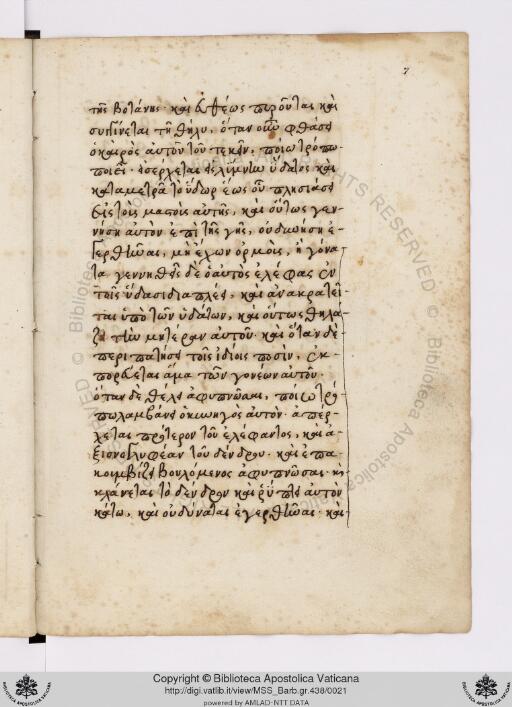 7
τῆς βοτάνης· καὶ εὐθέως πυροῦται καὶ
συγγίνεται τῇ θήλυ, ὅταν οὖν φθάσει
ὁ καιρὸς αὐτοῦ τοῦ τεκεῖν, ποίω τρόπω
ποιεῖ· ἐσέρχεται εἰς λίμνην ὕδατος καὶ
καταμετρᾶ τὸ ὕδωρ ἕως οὗ πλησιάσει
εἰς τοῖς μαστοῖς αὐτῆς, καὶ οὕτως γεν-
νήσῃ αὐτὸν ἐπὶ τῆς γῆς, οὐ
γερθῆναι, μὴ ἔχων ἁρμοὺς, ἢ γόνα-
τα γεννηθεὶς δὲ ὁ αὐτὸς ἐλέφας ἐν
τοῖς ὕδασι διαπλέει, καὶ ἀνακρατεῖ-
ται ὑπὸ τῶν ὑδάτων, καὶ οὕτως θηλά-
ζει τὴν μητέραν αὐτοῦ· καὶ ὅταν δὲ
περιπατήσει τοῖς ἰδίοις ποσὶν, ἐκ-
πορεύεται ἅμα τῶν γονέων αὐτοῦ·
ὅταν δὲ θέλει ἀφυπνῶσαι, ποίω τρό
πω λαμβάνει ὁ κυνηγὸς αὐτόν· ἀπέρ-
χεται πρότερον τοῦ ἐλέφαντος, καὶ
τοῦ δένδρου· καὶ ἐπα-
κουμβίζει βουλόμενος ἀφυπνῶσαι· καὶ
κλανεῖται τὸ δένδρον καὶ ῥύπτει αὐτὸν
κάτω, καὶ οὐ δύναται ἐγερθῆναι· καὶ
Copyright © Biblioteca Apostolica Vaticana
http://digi.vatlib.it/view/MSS_Barb.gr.438/0021
powered by AMLAD-NTT DATA